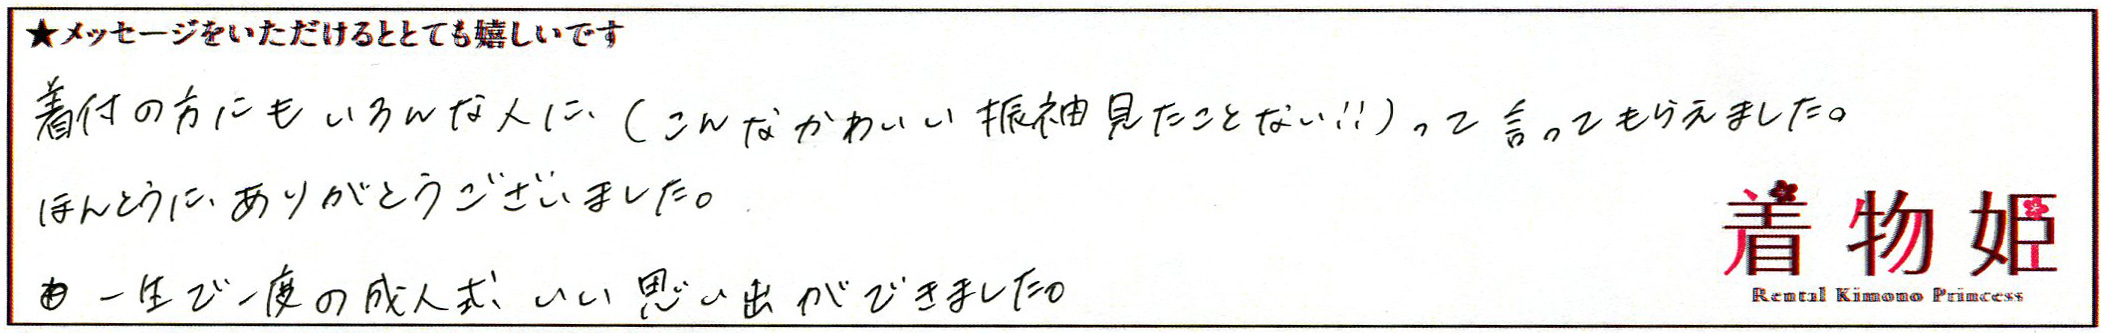 ★メッセージをいただけるととても嬉しいです
着付の方にもいろんな人に、(こんなかわいい振袖見たことない!!)って言ってもらえました。
ほんとうに、ありがとうございました。
一生で一度の成人式、いい思い出ができました。
着物姫
Rental Kimono Princess